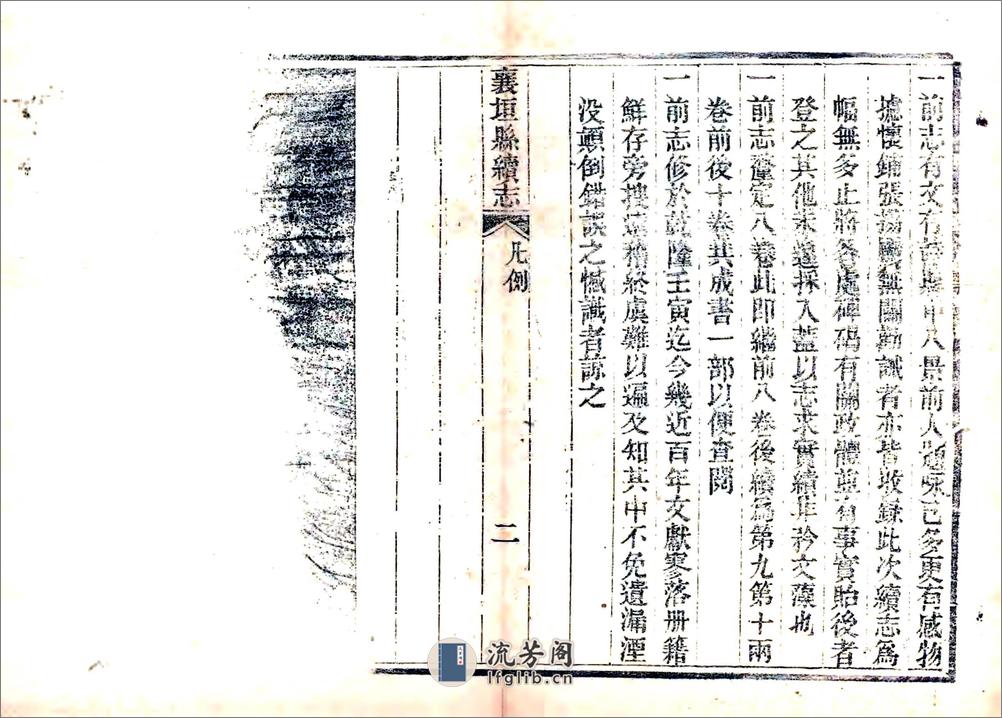 一前志有文有詩集中八景前人題咏已多更有感物
懷鋪張揚無關勸誡者亦皆收錄此次續志為
幅無多止將各處碑碣有關政體並有事實貽後者
登之其他未遑採入蓋以志求實績非矜文藻也
一前志釐定八卷此即繼前八卷後續為第九第十兩
卷前後十卷共成書一部以便查閱
一前志修於乾隆壬寅迄今幾近百年文獻寥落册籍
鮮存旁搜遠稽終虞難以遍及知其中不免遺漏湮
没顛倒錯誤之憾識者諒之
襄垣縣續志
凡例
二
流芳阁
lfglib.cn